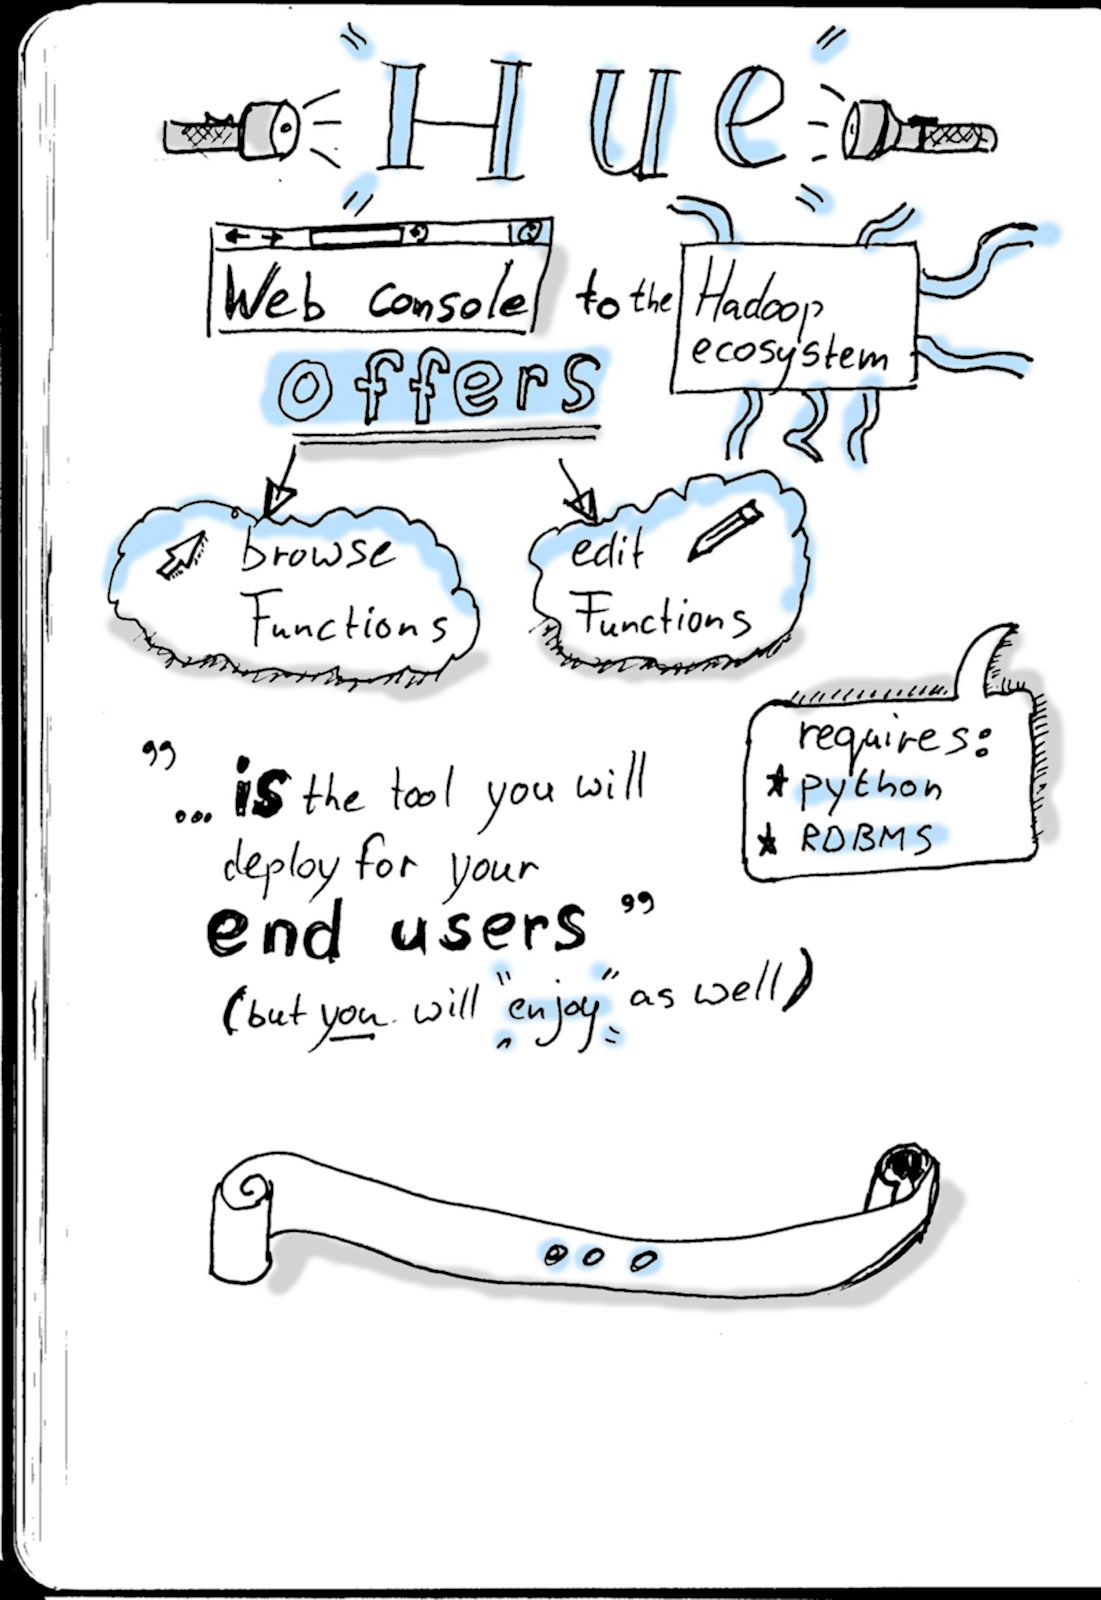 Hue
Web console to the Hadoop ecosystem
offers
browse Functions
edit Functions
requires:
python
RDBMS
" ... is the tool you will
deploy for your
end users "
(but you will "enjoy" as well)